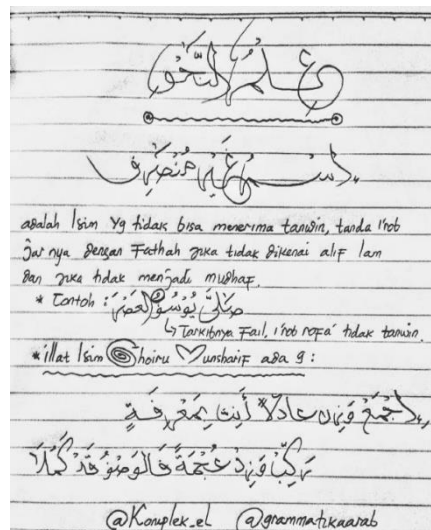 عِلْمُ النَّحْوِ
اسم غير منصرف
adalah Isim yg tidak bisa menerima tanwin, tanda I'rob
jar nya dengan Fathah jika tidak dikenai alif lam
dan jika tidak menjadi mudhaf.
* Contoh : صَلَّى يُوْسُفُ الْعَصْرَ
↳ Tarkibnya Fail, I'rob rofa' tidak tanwin.
* illat Isim Ghoiru Munsharif ada 9 :
اِجْمَعْ وَزِنْ عَادِلًا أَنِّثْ بِمَعْرِفَةٍ
رَكِّبْ وَزِدْ عُجْمَةً فَالْوَصْفُ قَدْ كَمُلَا
@Komplek_el @grammatikaarab